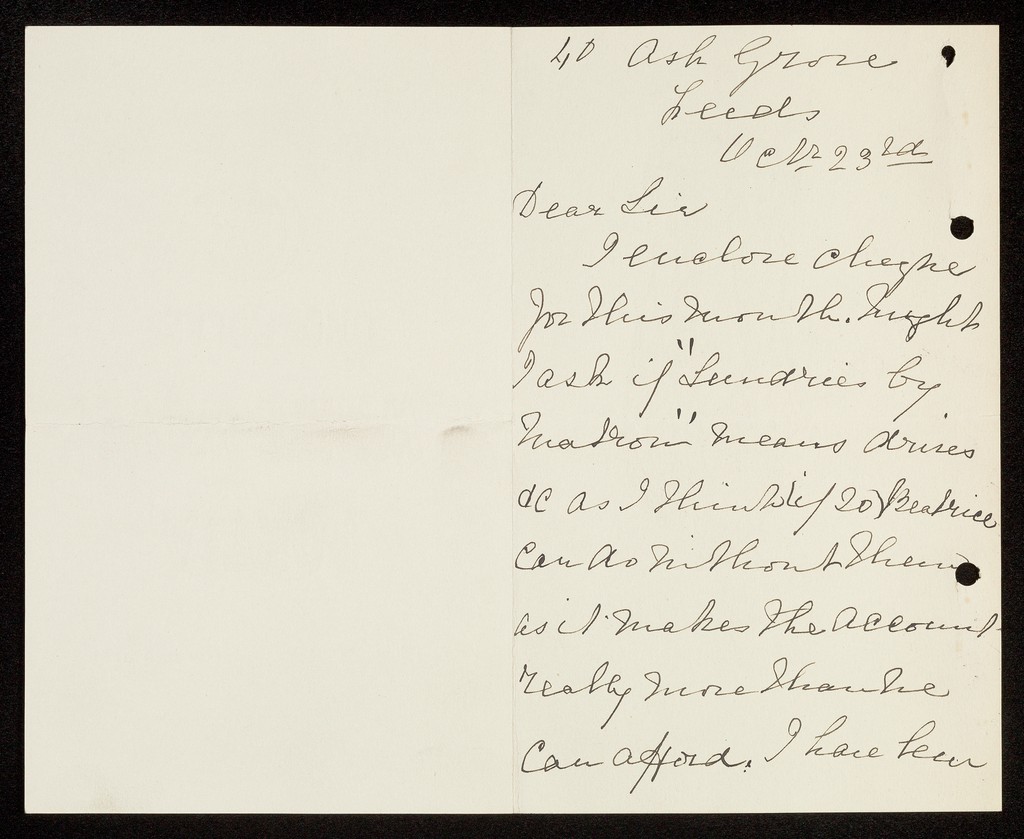 40 Ash Grove
Leeds
Octr 23rd
Dear Sir
I enclose cheque
for this month. Might
I ask if "Sundries by
Matron" means drives
&c as I think (if so) Beatrice
can do without them
as it makes the account
really more than we
can afford. I have been